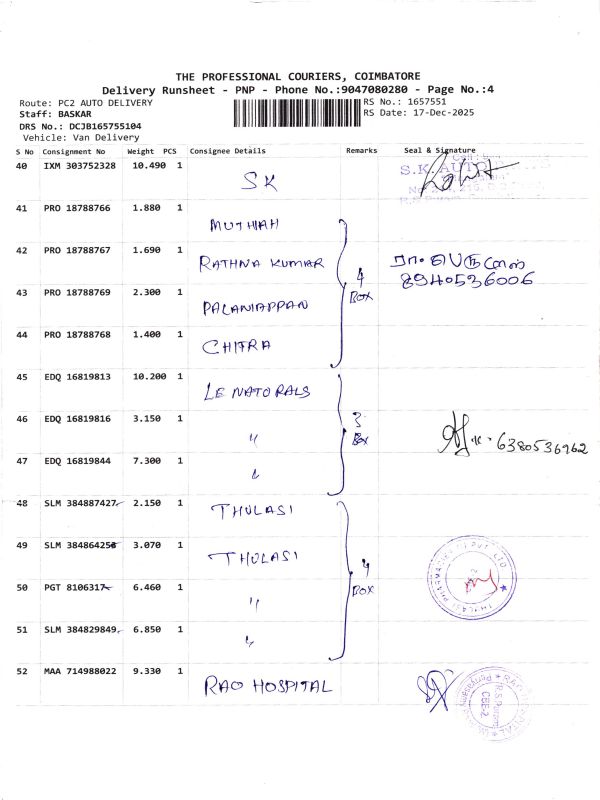 THE PROFESSIONAL COURIERS, COIMBATORE
Delivery Runsheet - PNP - Phone No.:9047080280 - Page No.:4
Route: PC2 AUTO DELIVERY
RS No.: 1657551
Staff: BASKAR
RS Date: 17-Dec-2025
DRS No.: DCJB165755104
Vehicle: Van Delivery
S No Consignment No Weight PCS Consignee Details Remarks Seal & Signature
40 IXM 303752328 10.490 1 SK S.K. AUTO
41 PRO 18788766 1.880 1 MUTHIAH
42 PRO 18788767 1.690 1 RATHNA KUMAR
4 BOX
8940536006
43 PRO 18788769 2.300 1 PALANIAPPAN
44 PRO 18788768 1.400 1 CHITRA
45 EDQ 16819813 10.200 1 LE NATORALS
46 EDQ 16819816 3.150 1 "
3 Box
6380536962
47 EDQ 16819844 7.300 1 "
48 SLM 384887427 2.150 1 THULASI
49 SLM 384864258 3.070 1 THULASI
4 BOX
50 PGT 8106317 6.460 1 "
51 SLM 384829849 6.850 1 "
52 MAA 714988022 9.330 1 RAO HOSPITAL
R.S Puram
CBE-2